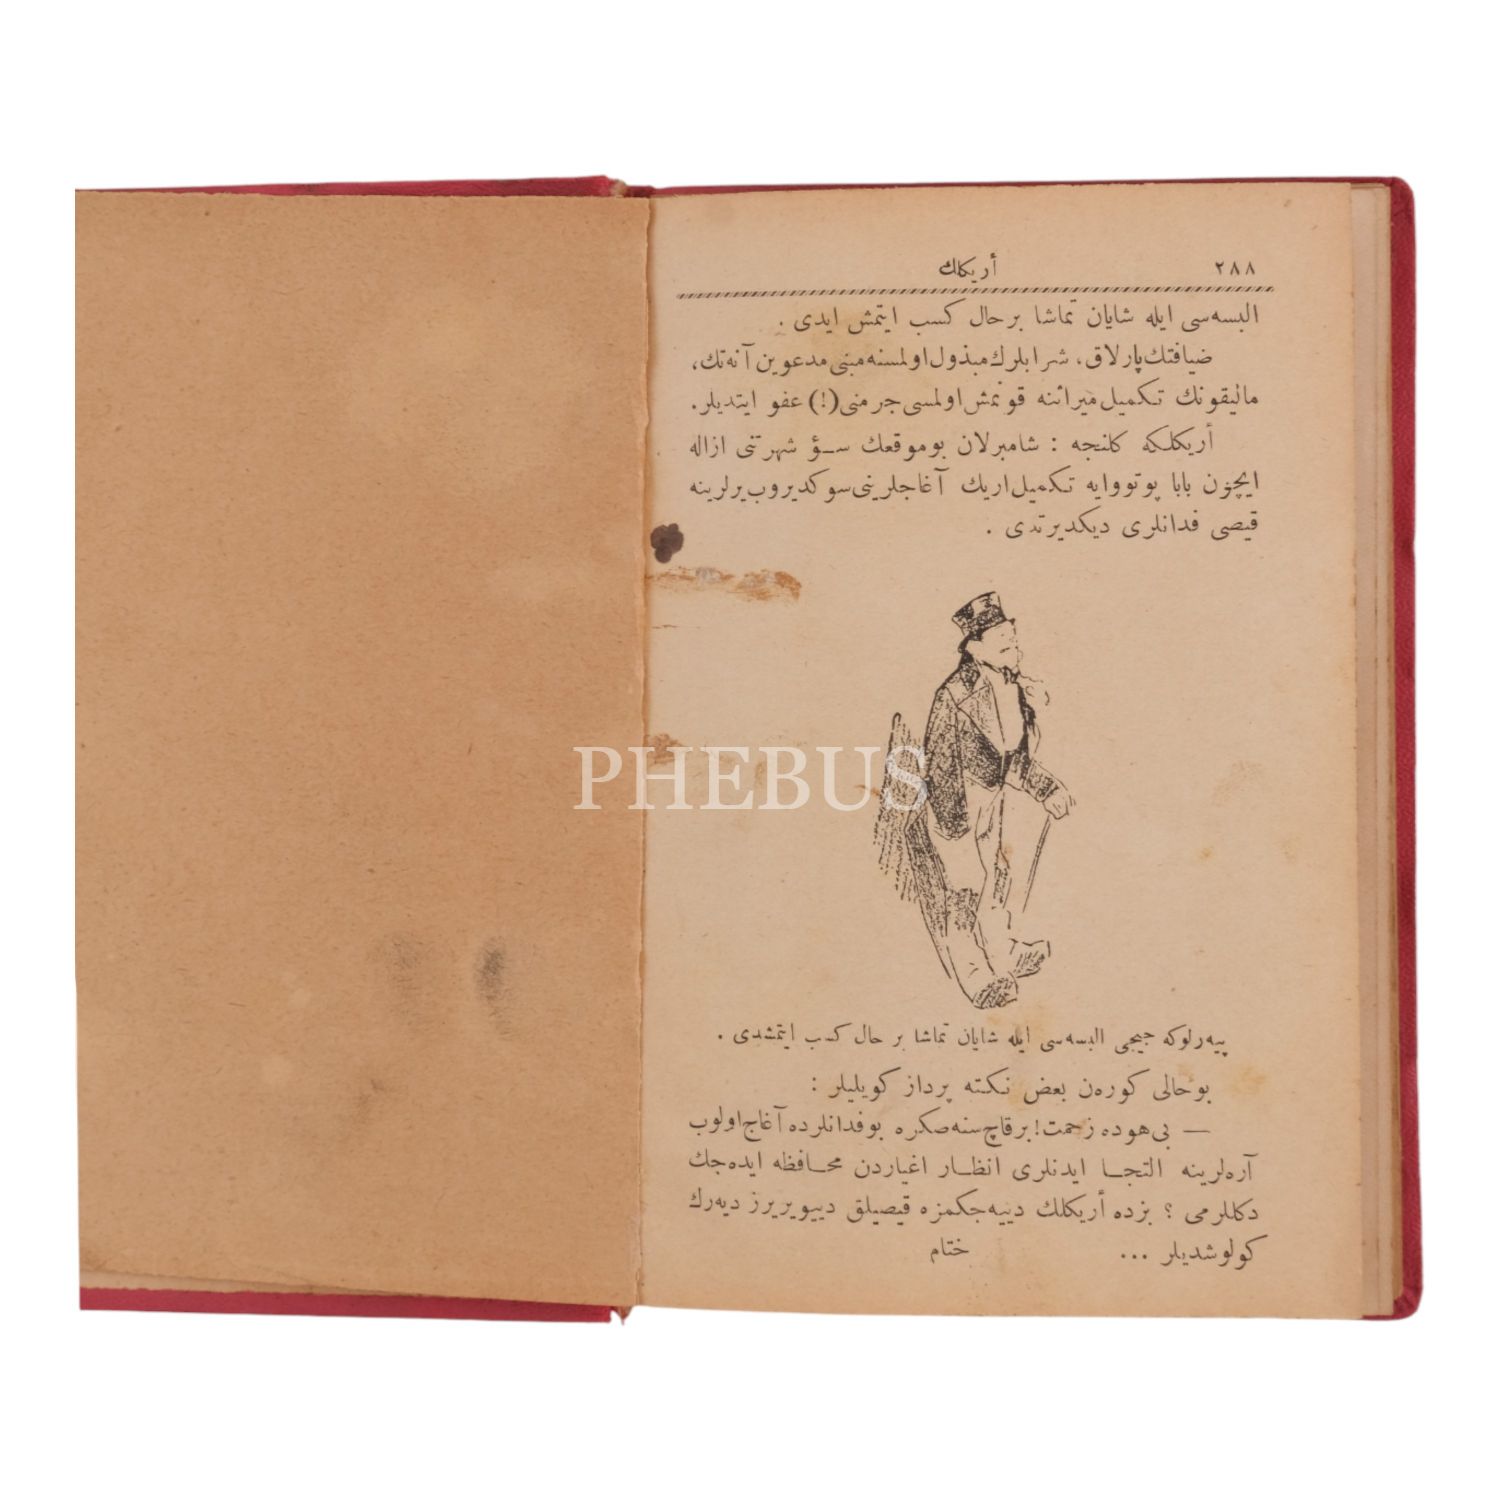 ٢٨٨ أریکلك
البسه‌سی ایله شایان تماشا بر حال کسب ایتمش ایدی .
ضیافتك پارلاق، شرابلرك مبذول اولمسنه مبنی مدعوین آنه‌تك،
مالیقونك تکمیل میراثنه قونمش اولمسی جرمنی (!) عفو ایتدیلر.
أریکلکه کلنجه : شامبرلان بوموقعك سـؤ شهرتنی ازاله
ایچون بابا پوتووایه تکمیل اریك آغاجلرینی سوکدیروب یرلرینه
قیصی فدانلری دیکدیرتدی .
PHEBUS
پیه‌رلوکه جیجی البسه‌سی ایله شایان تماشا بر حال کسب ایتمشدی .
بوحالی کوره‌ن بعض نکته پرداز کویلیلر :
— بی‌هوده زحمت! برقاچ سنه‌صکره بوفدانلرده آغاج اولوب
آره‌لرینه التجـا ایدنلری انظـار اغیاردن محـافظه ایده‌جك
دکللرمی ؟ بزده أریکلك دییه‌جکمزه قیصیلق دییویریرز دیه‌رك
کولوشدیلر ... ختام